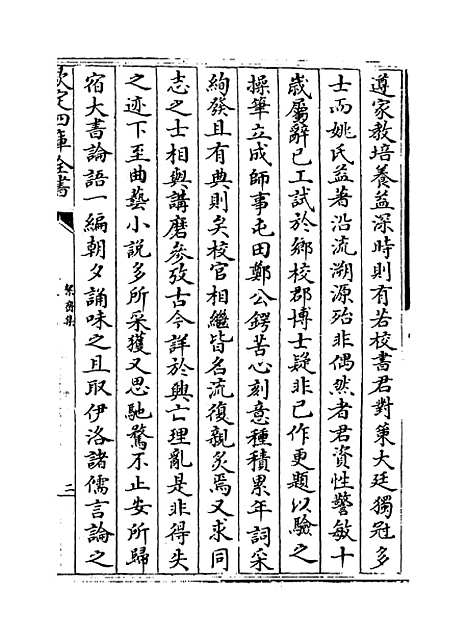 遵家教培養益深時則有若校書君對策大廷獨冠多
士而姚氏益著沿流溯源殆非偶然者君資性警敏十
歲屬辭已工試於鄉校郡博士疑非已作更題以驗之
操筆立成師事屯田鄭公鍔苦心刻意種積累年詞采
絢發且有典則矣校官相繼皆名流復親炙焉又求同
志之士相與講磨參攷古今詳於興亡理亂是非得失
之迹下至曲藝小說多所采獲又思馳騖不止安所歸
宿大書論語一編朝夕誦味之且取伊洛諸儒言論之
欽定四庫全書
絜齋集
二